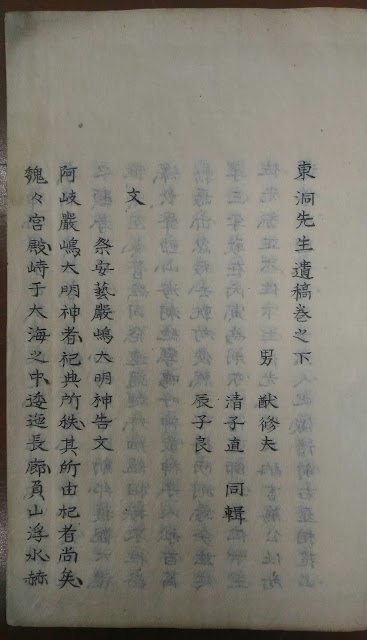 東洞先生遺稿卷之下
男 猷修夫
清子直 同輯
辰子良
文
祭安藝嚴嶋大明神告文
阿岐嚴嶋大明神者祀典所秩其所由祀者尚矣
魏々宮殿峙于大海之中逶迤長廊負山浮水赫